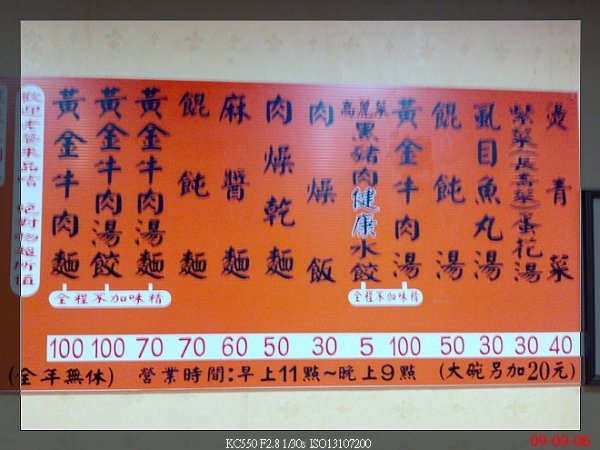 歡迎老饕來品嚐 絕對物超所值
黃金牛肉麵
黃金牛肉湯餃
黃金牛肉湯麵
餛飩麵
麻醬麵
肉燥乾麵
肉燥飯
高麗菜黑豬肉健康水餃
黃金牛肉湯
餛飩湯
虱目魚丸湯
紫菜(長壽菜)蛋花湯
燙青菜
全程不加味精
全程不加味精
100 100 70 70 60 50 30 5 100 50 30 30 40
(全年無休) 營業時間:早上11點~晚上9點 (大碗另加20元)
KC550 F2.8 1/30s ISO13107200
09-09-06